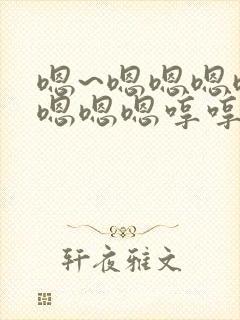 嗯~嗯嗯嗯
嗯嗯嗯哼哼
轩夜雅文